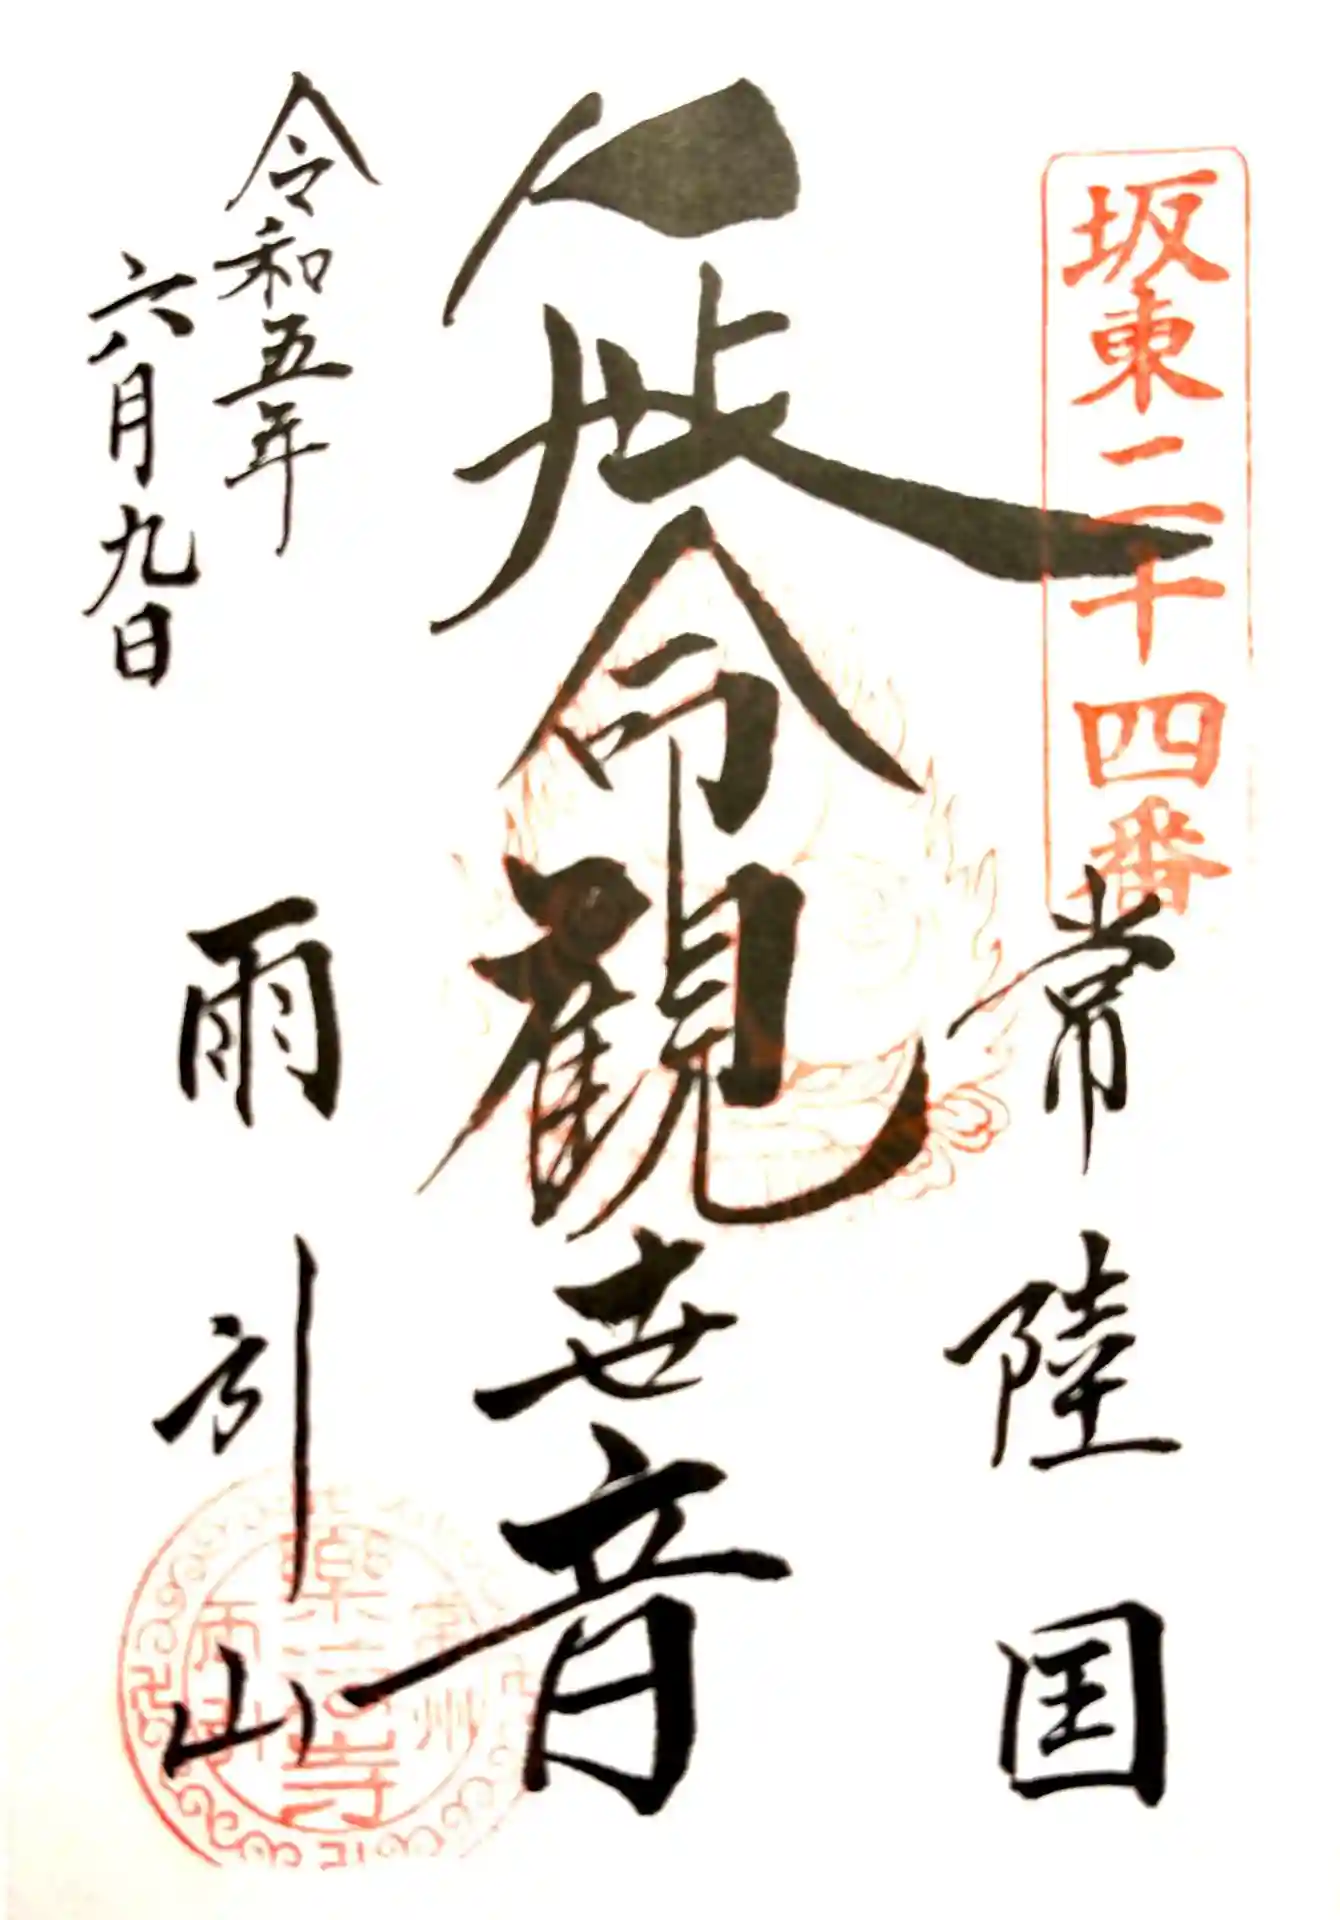 坂東二十四番
常陸国
延命観世音
雨引山
令和五年
六月九日
樂法寺